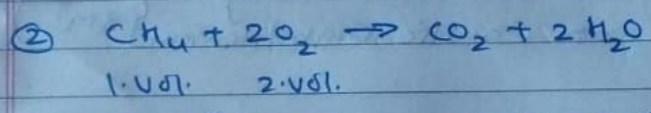 ② CH₄ + 2O₂ → CO₂ + 2H₂O
1.Vol. 2.Vol.